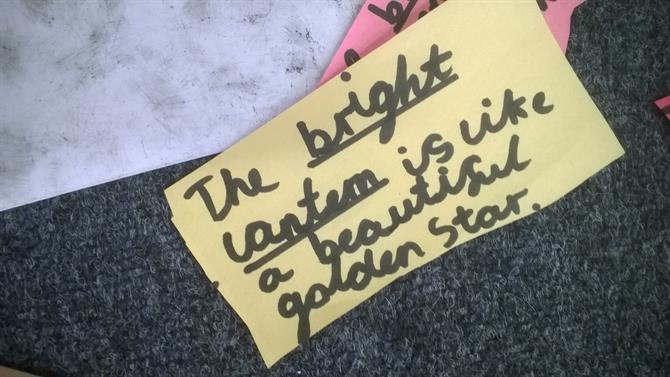 The bright
lantern is like
a beautiful
golden star.